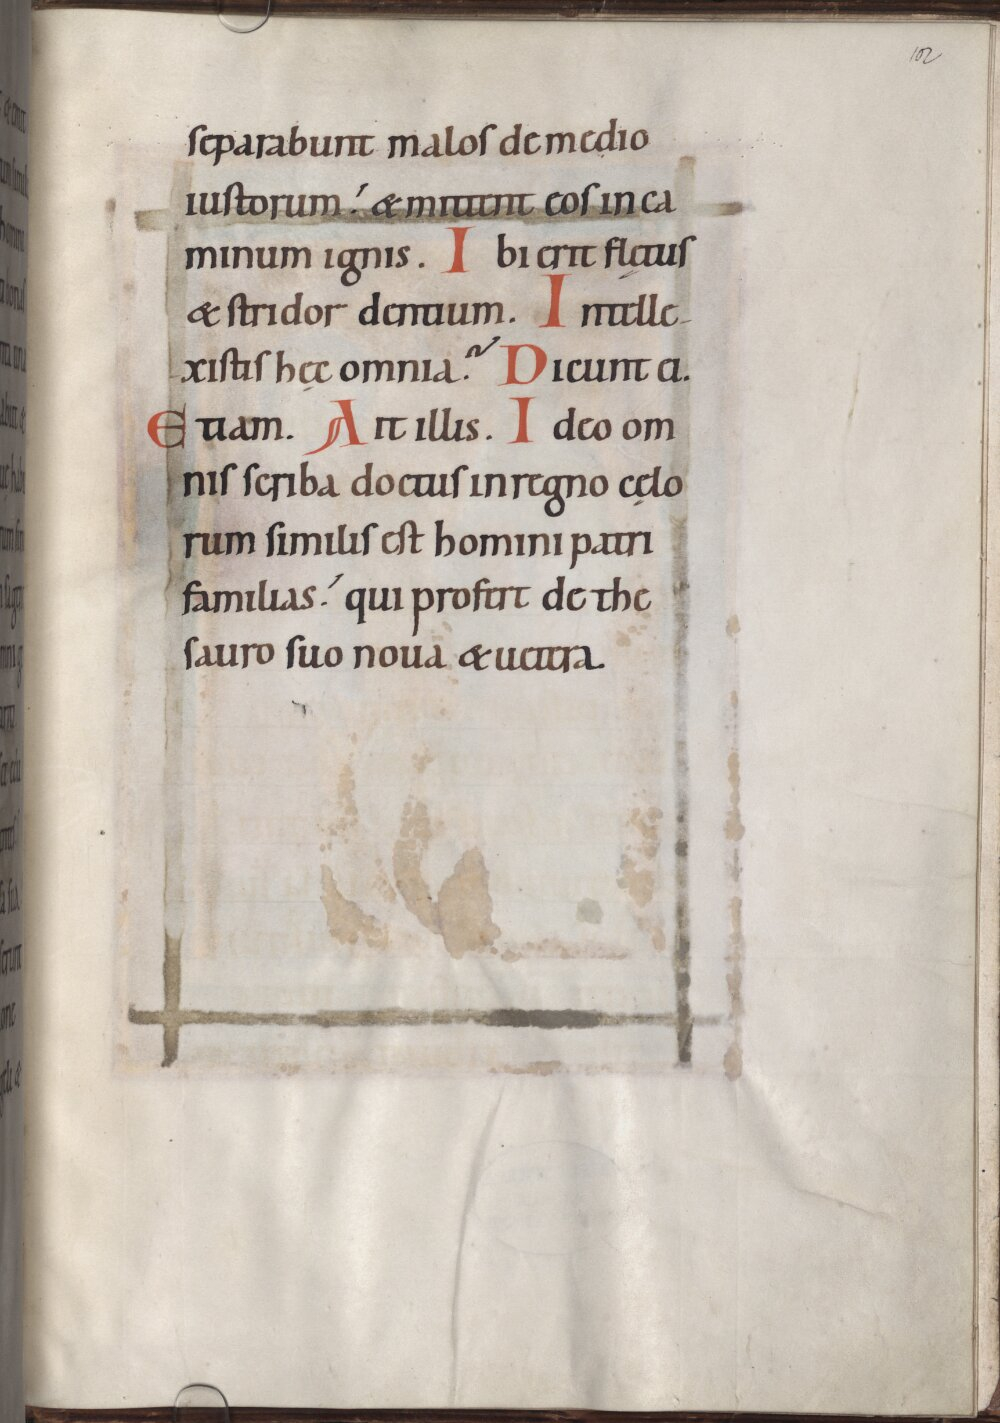 102
separabunt malos de medio
iustorum: & mittent eos in ca
minum ignis. Ibi erit fletus
& stridor dentium. Intelle-
xistis hęc omnia? Dicunt ei.
Etiam. Ait illis. Ideo om
nis scriba doctus in regno cęlo
rum similis est homini patri
familias: qui profert de the
sauro suo noua & uetera.